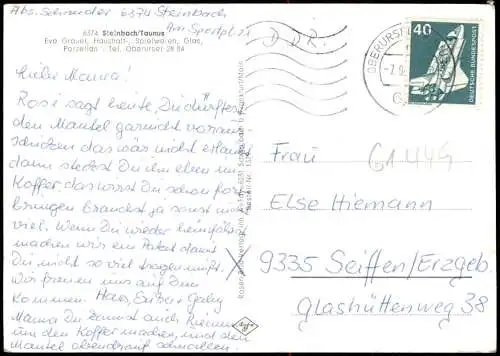 Abs. Schneider 6374 Steinbach
Am Sportpl. 21
6374 Steinbach/Taunus
Eva Grauel, Haushalt-, Spielwaren, Glas,
Porzellan · Tel. Oberursel
D. D. R.
Liebe Mama!
Rosi sagt heute, Du dürftest
den Mantel garnicht voraus
schicken das war nicht erlaubt
dann steckst Du ihn eben im
Koffer, das wirst Du schon fort
bringen brauchst ja sonst nicht
viel. Wenn Du wieder heimfährst
machen wir ein Paket damit
Du nicht so viel tragen mußt.
Wir freuen uns auf Dein
Kommen. Hans,
Mama Du kannst auch
um den Koffer machen, und den
Mantel obendrauf schnallen.
OBERURSEL
40
DEUTSCHE BUNDESPOST
G1.444
Frau
Else Hiemann
X 9335 Seiffen/Erzgeb
Glashüttenweg 38
Agfa